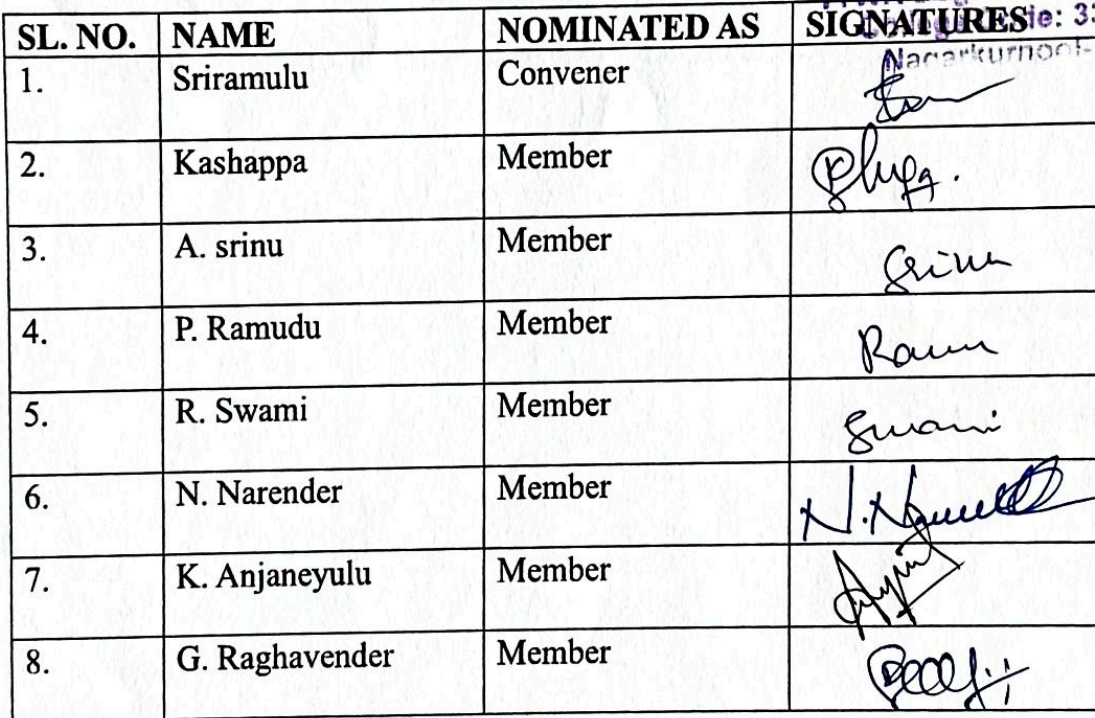 SL. NO. NAME NOMINATED AS SIGNATURES
Nagarkurnool-
1. Sriramulu Convener
2. Kashappa Member
3. A. srinu Member Srinu
4. P. Ramudu Member Ramu
5. R. Swami Member Swami
6. N. Narender Member
7. K. Anjaneyulu Member
8. G. Raghavender Member